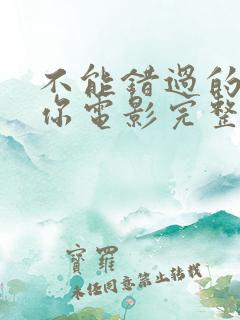 不能錯過的
你電影完整
寶羅
未经同意禁止转载